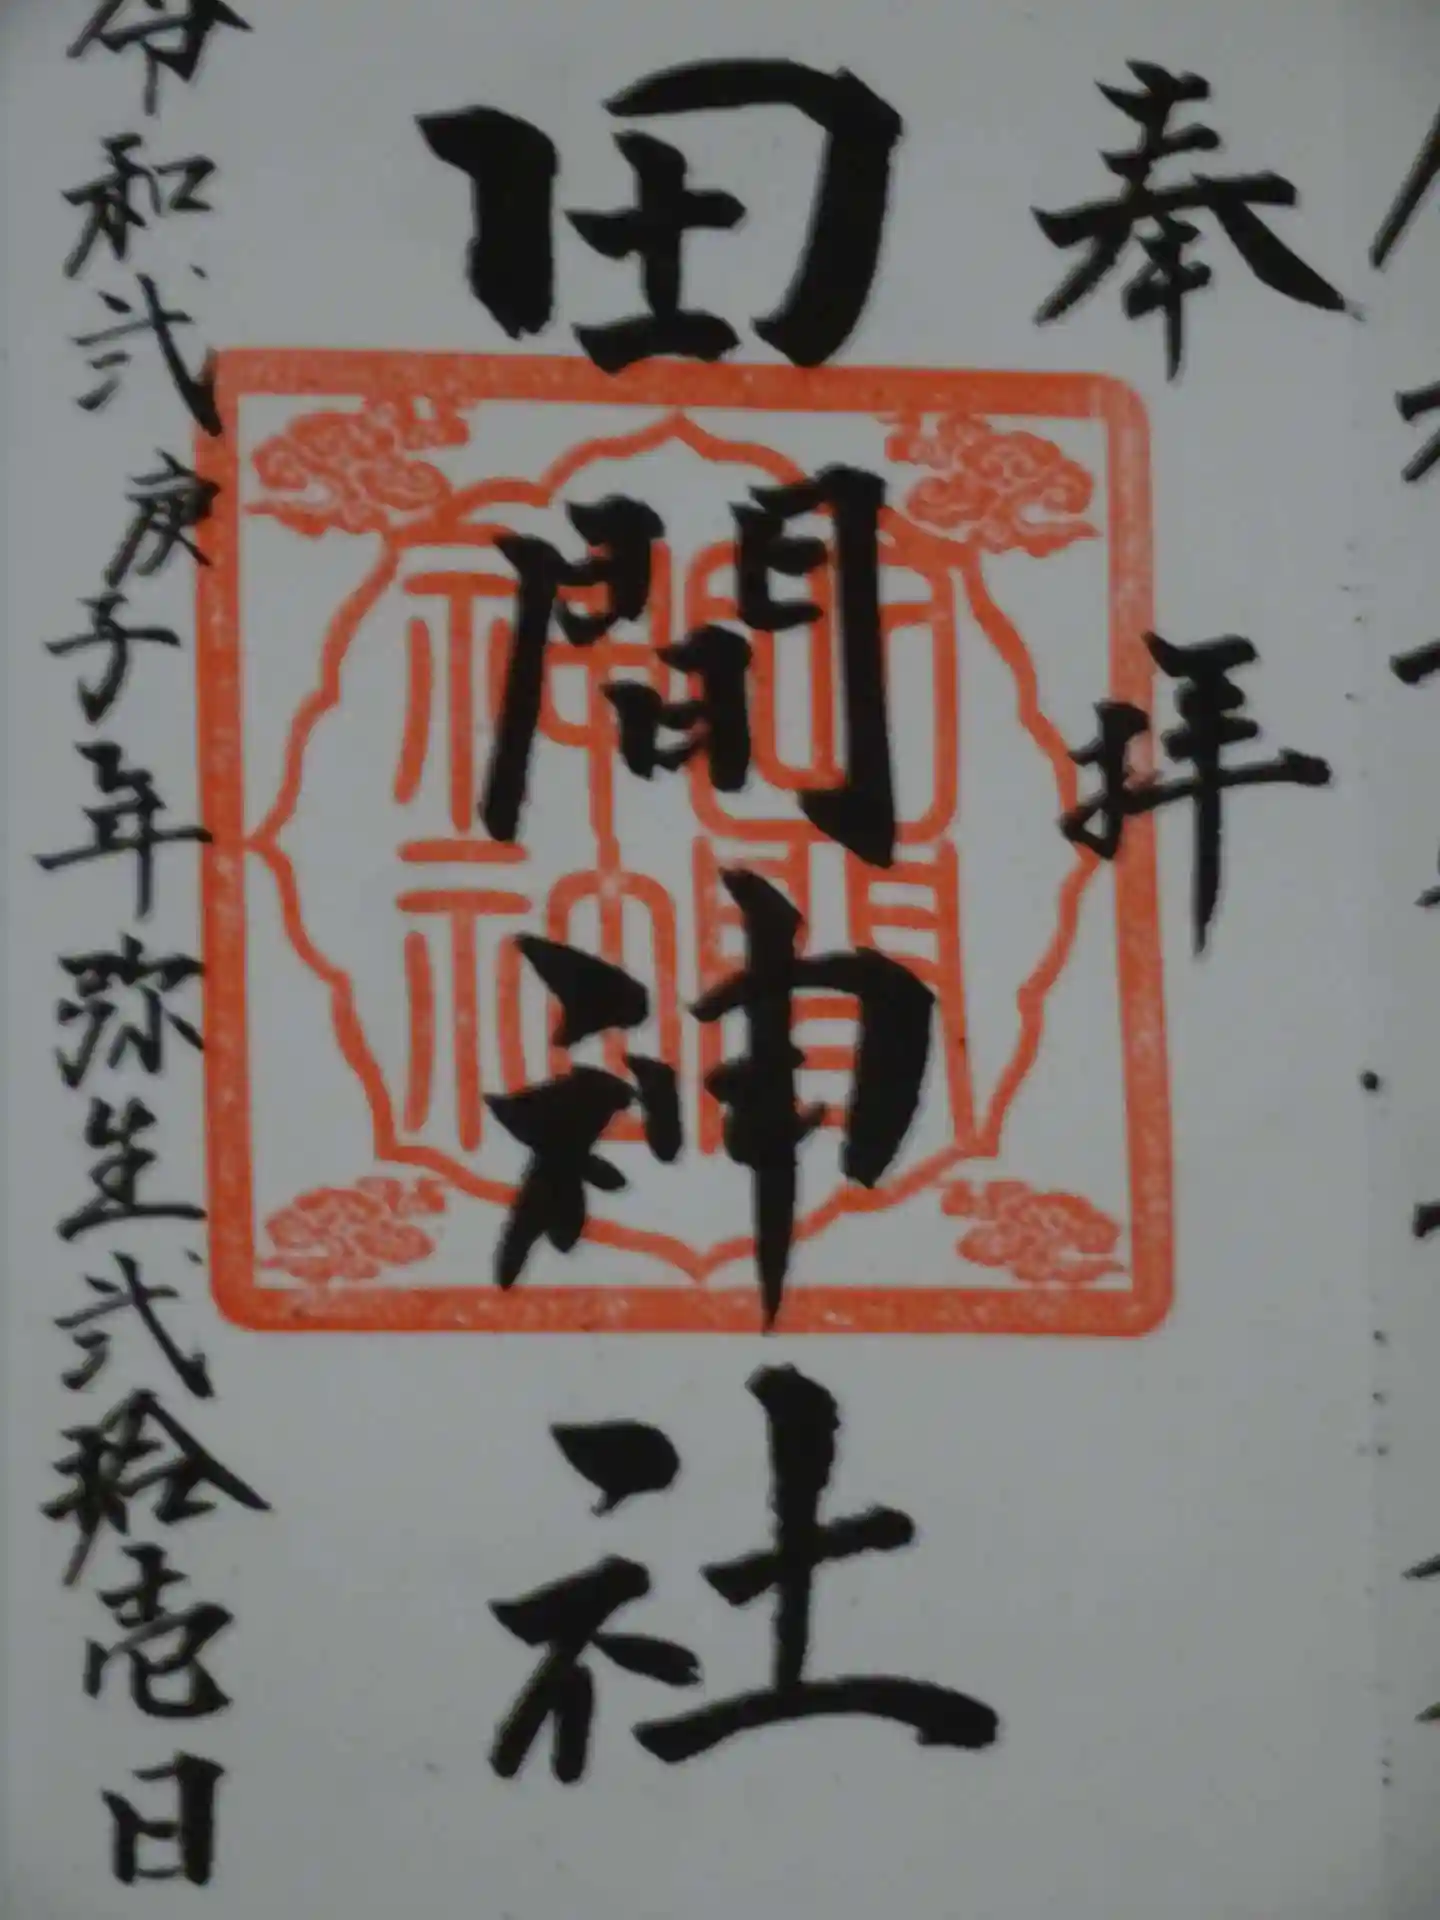 奉拝
田間神社
田間神社
令和弐庚子年弥生弐拾壱日